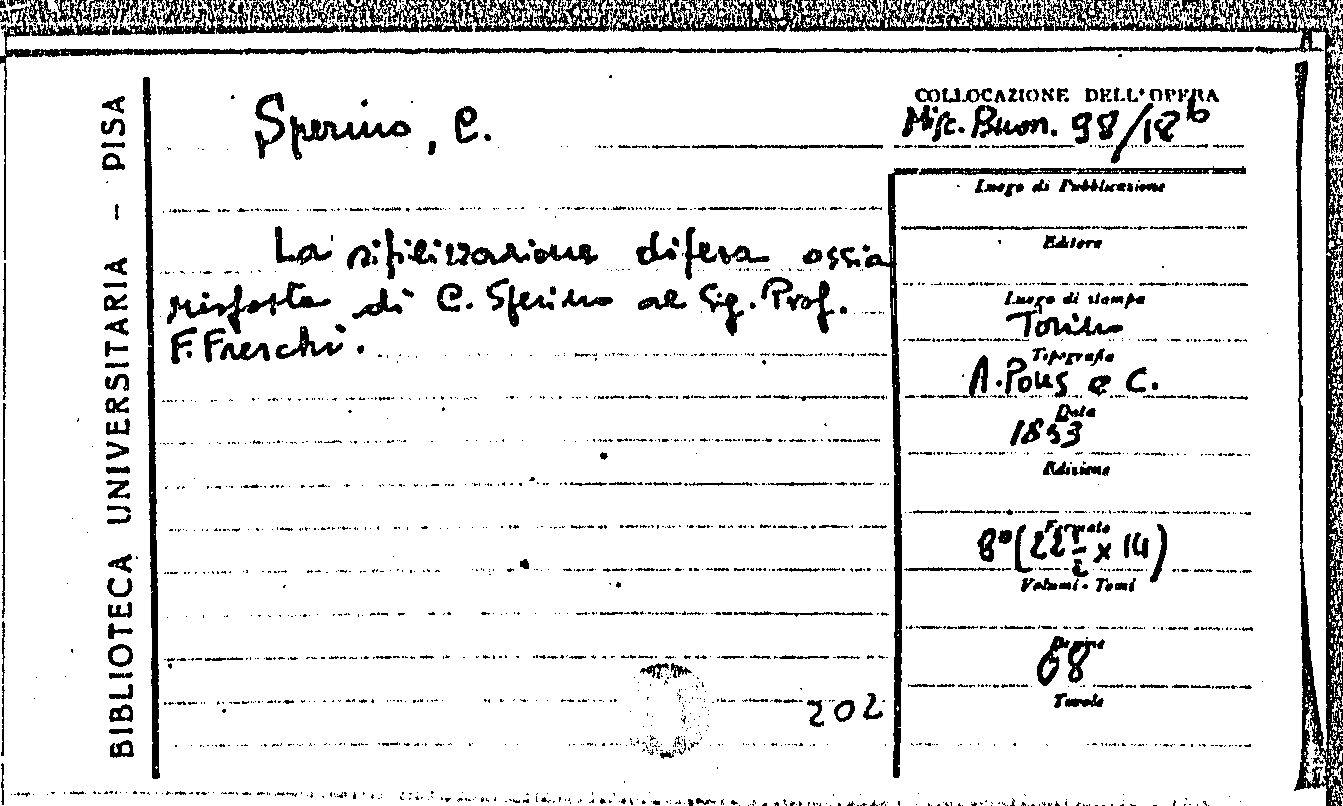 BIBLIOTECA UNIVERSITARIA - PISA
Sperino, C.
La sifilizzazione difesa ossia
risposta di C. Sperino al Sig. Prof.
F. Freschi.
202
COLLOCAZIONE DELL'OPERA
Misc. Buon. 98/18 b
Luogo di Pubblicazione
Editore
Luogo di stampa
Torino
Tipografia
A. Pons e C.
Data
1853
Edizione
Formato
8° (22 1/2 x 14)
Volumi - Tomi
Pagine
68
Tavole